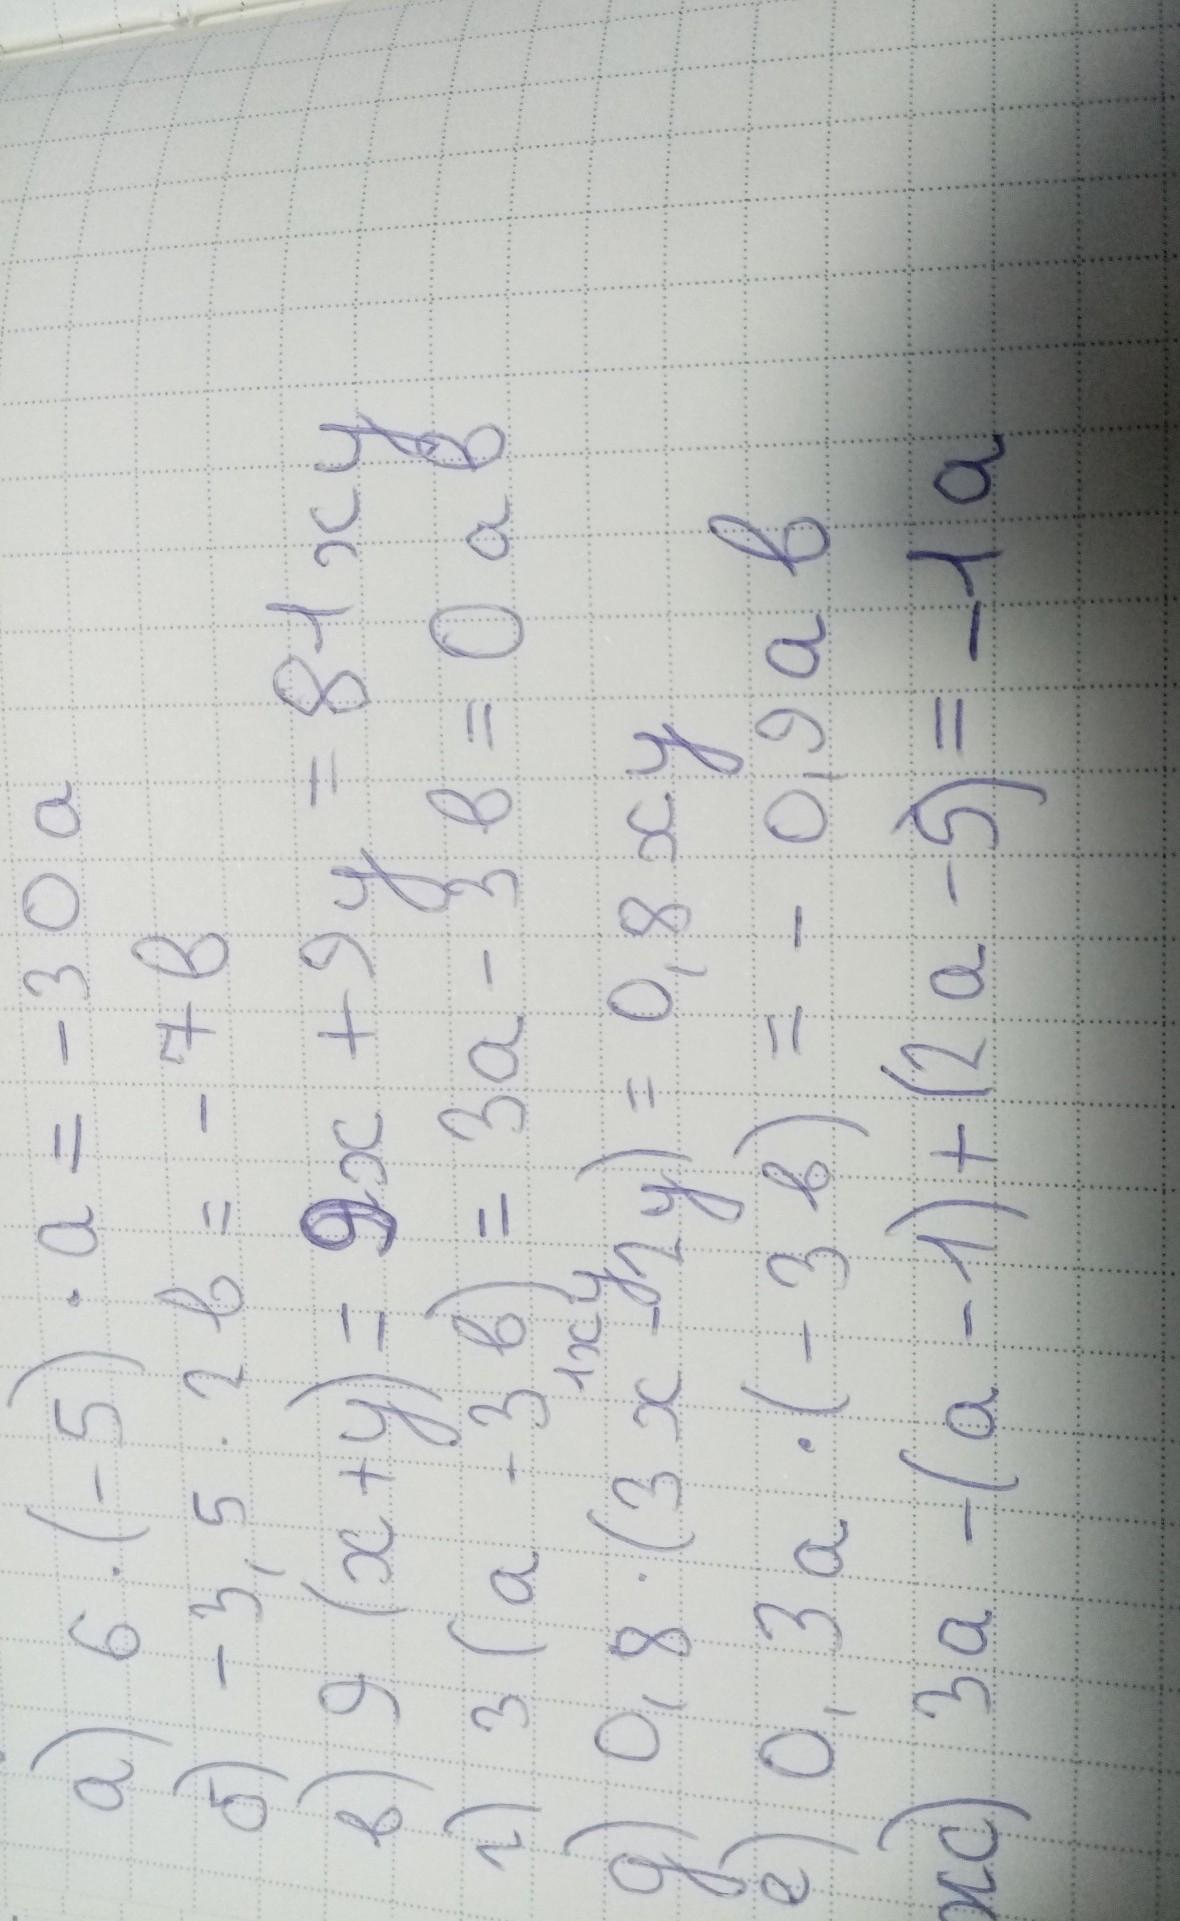 а) 6 · (-5) · a = -30 a
б) -3,5 · 2 в = -7 в
в) 9 (x + y) = 9x + 9y = 81 xy
г) 3 (a - 3 в) = 3a - 3 в = 0 a в
1xy
д) 0,8 · (3 x - 2y) = 0,8 xy
е) 0,3 a · (-3 в) = -0,9 a в
ж) 3a - (a - 1) + (2 a - 5) = -1 a